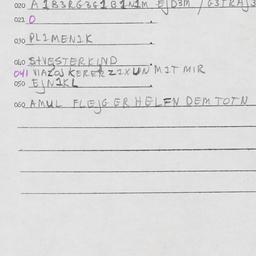 020 A1B3RG3G1B1N1M EJD3M / G3TRAJ3
021 O
030 PLIMENIK
040 SHVESTERKIND
041 VIAZOJ KERER ZIXUN MIT MIR
050 EJNIKL
060 AMUL FLEJG ER HELFN DEM TOTN